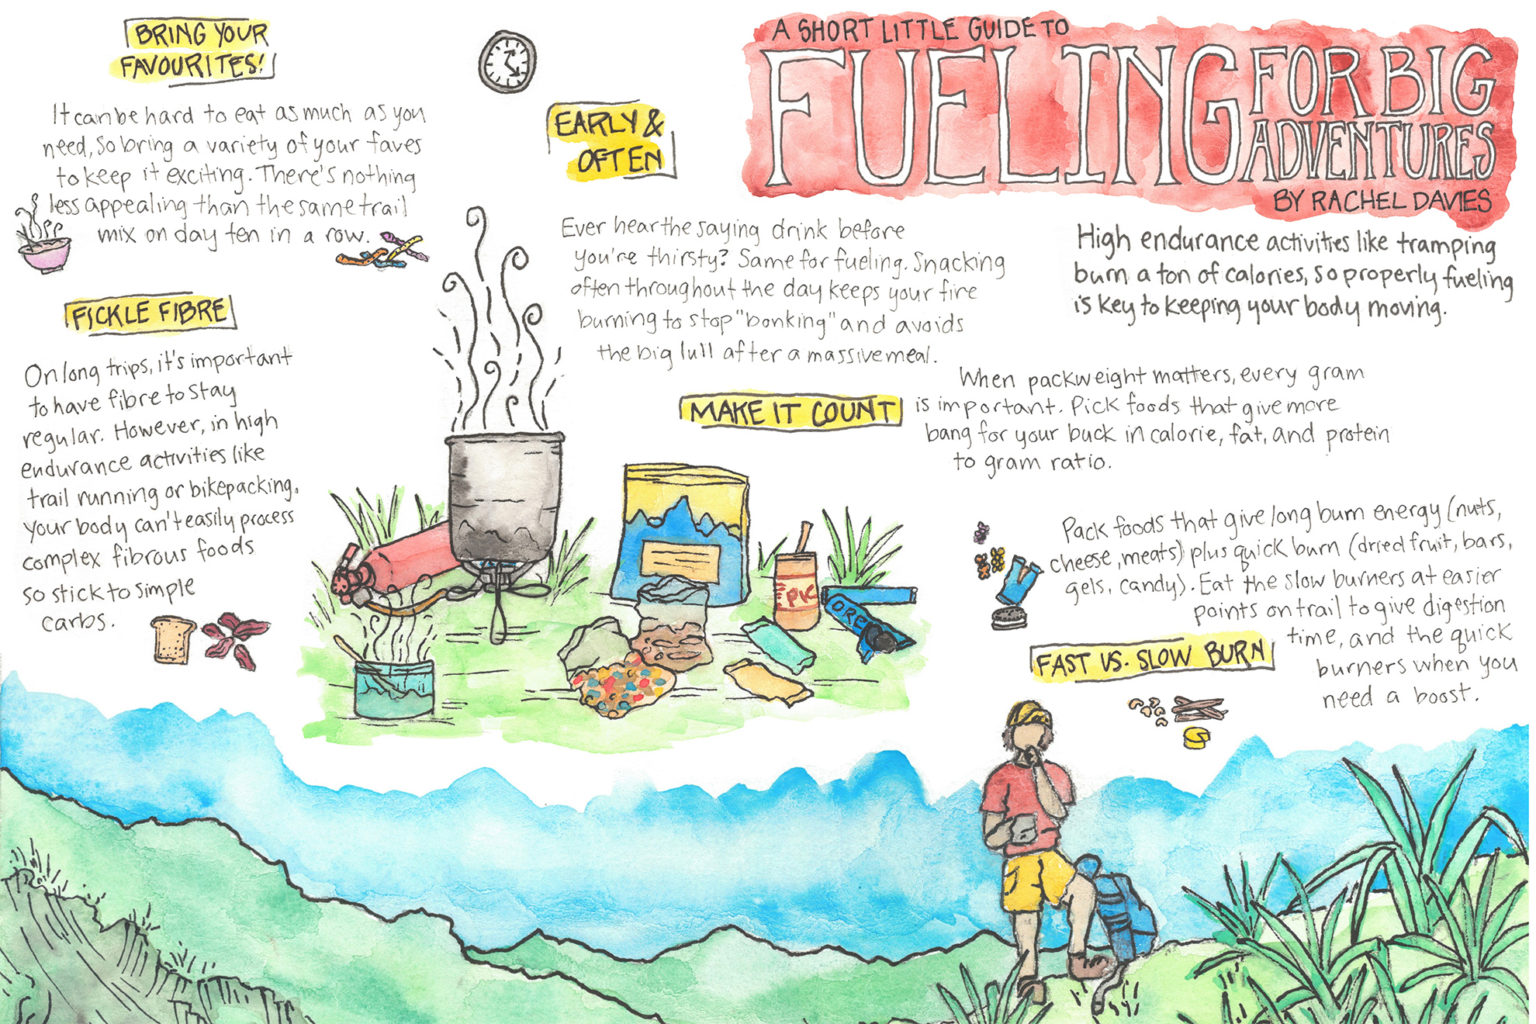 A SHORT LITTLE GUIDE TO
FUELING FOR BIG
ADVENTURES
BY RACHEL DAVIES
High endurance activities like tramping
burn a ton of calories, so properly fueling
is key to keeping your body moving.
BRING YOUR
FAVOURITES!
It can be hard to eat as much as you
need, so bring a variety of your faves
to keep it exciting. There's nothing
less appealing than the same trail
mix on day ten in a row.
EARLY &
OFTEN
Ever hear the saying drink before
you're thirsty? Same for fueling. Snacking
often throughout the day keeps your fire
burning to stop "bonking" and avoids
the big lull after a massive meal.
FICKLE FIBRE
On long trips, it's important
to have fibre to stay
regular. However, in high
endurance activities like
trail running or bikepacking,
your body can't easily process
complex fibrous foods
so stick to simple
carbs.
MAKE IT COUNT
When packweight matters, every gram
is important. Pick foods that give more
bang for your buck in calorie, fat, and protein
to gram ratio.
Pack foods that give long burn energy (nuts,
cheese, meats) plus quick burn (dried fruit, bars,
gels, candy). Eat the slow burners at easier
points on trail to give digestion
time, and the quick
burners when you
need a boost.
FAST VS. SLOW BURN
PIC
ORE